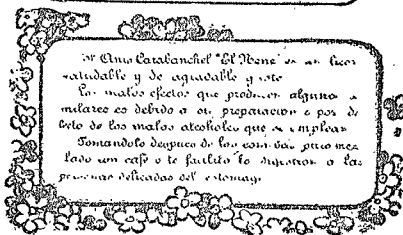 Anis Carabanchel "El Nene" es un licor
saludable y de agradable gusto
Los malos efectos que producen algunos
milares es debido a su preparacion o por de
los malos alcoholes que se emplean
Tomandolo despues de las comidas puro mez
lado con cafe o te facilita la digestion a las
personas delicadas del estomago